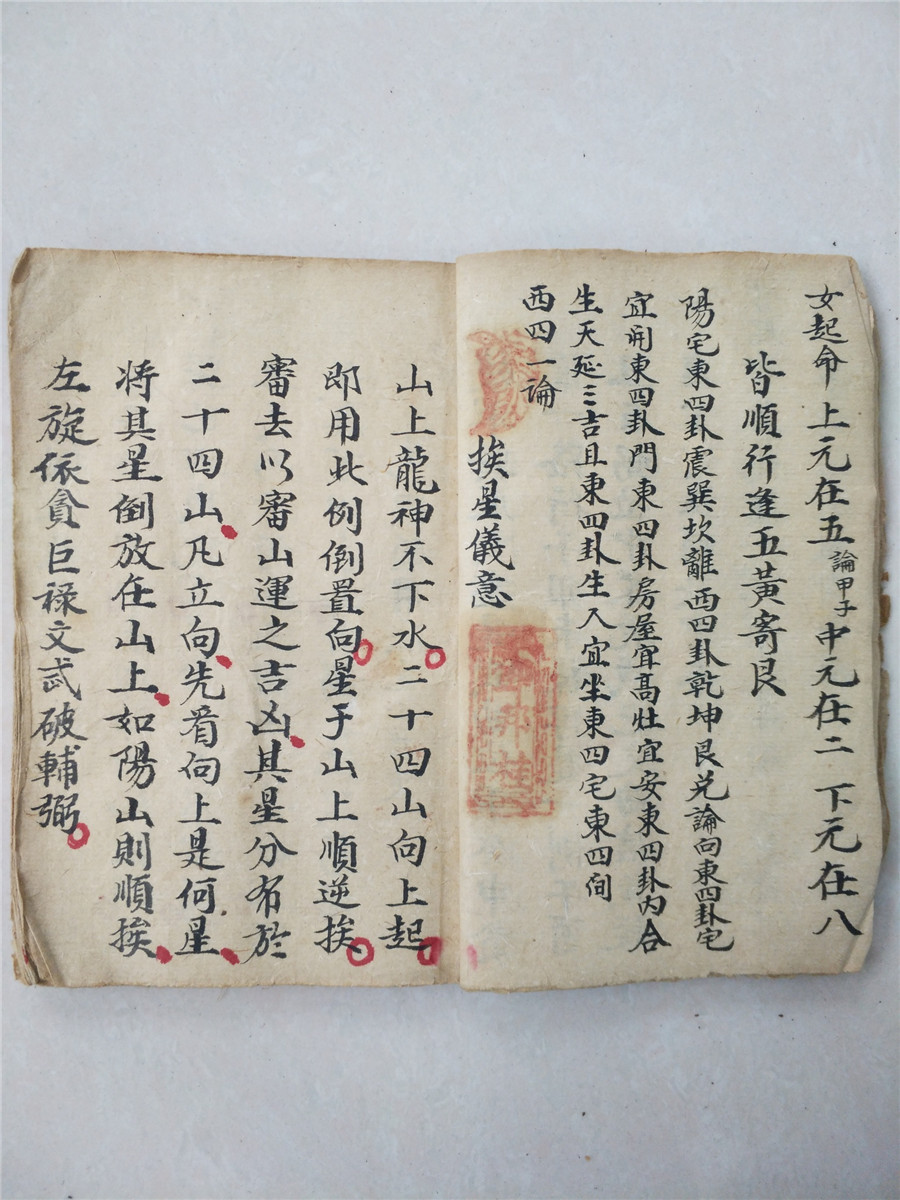 女起命 上元在五 論甲子 中元在二 下元在八
皆順行逢五黃寄艮
陽宅東四卦震巽坎離西四卦乾坤艮兑論向東四卦宅
宜開東四卦門東四卦房屋宜高灶宜安東四卦内合
生天延三吉且東四卦生人宜坐東四宅東四间
西四一論
挨星儀意
山上龍神不下水二十四山向上起
即用此例倒置向星于山上順逆挨
審去以審山運之吉凶其星分布於
二十四山凡立向先看向上是何星
将其星倒放在山上如陽山則順挨
左旋依貪巨禄文武破輔弼